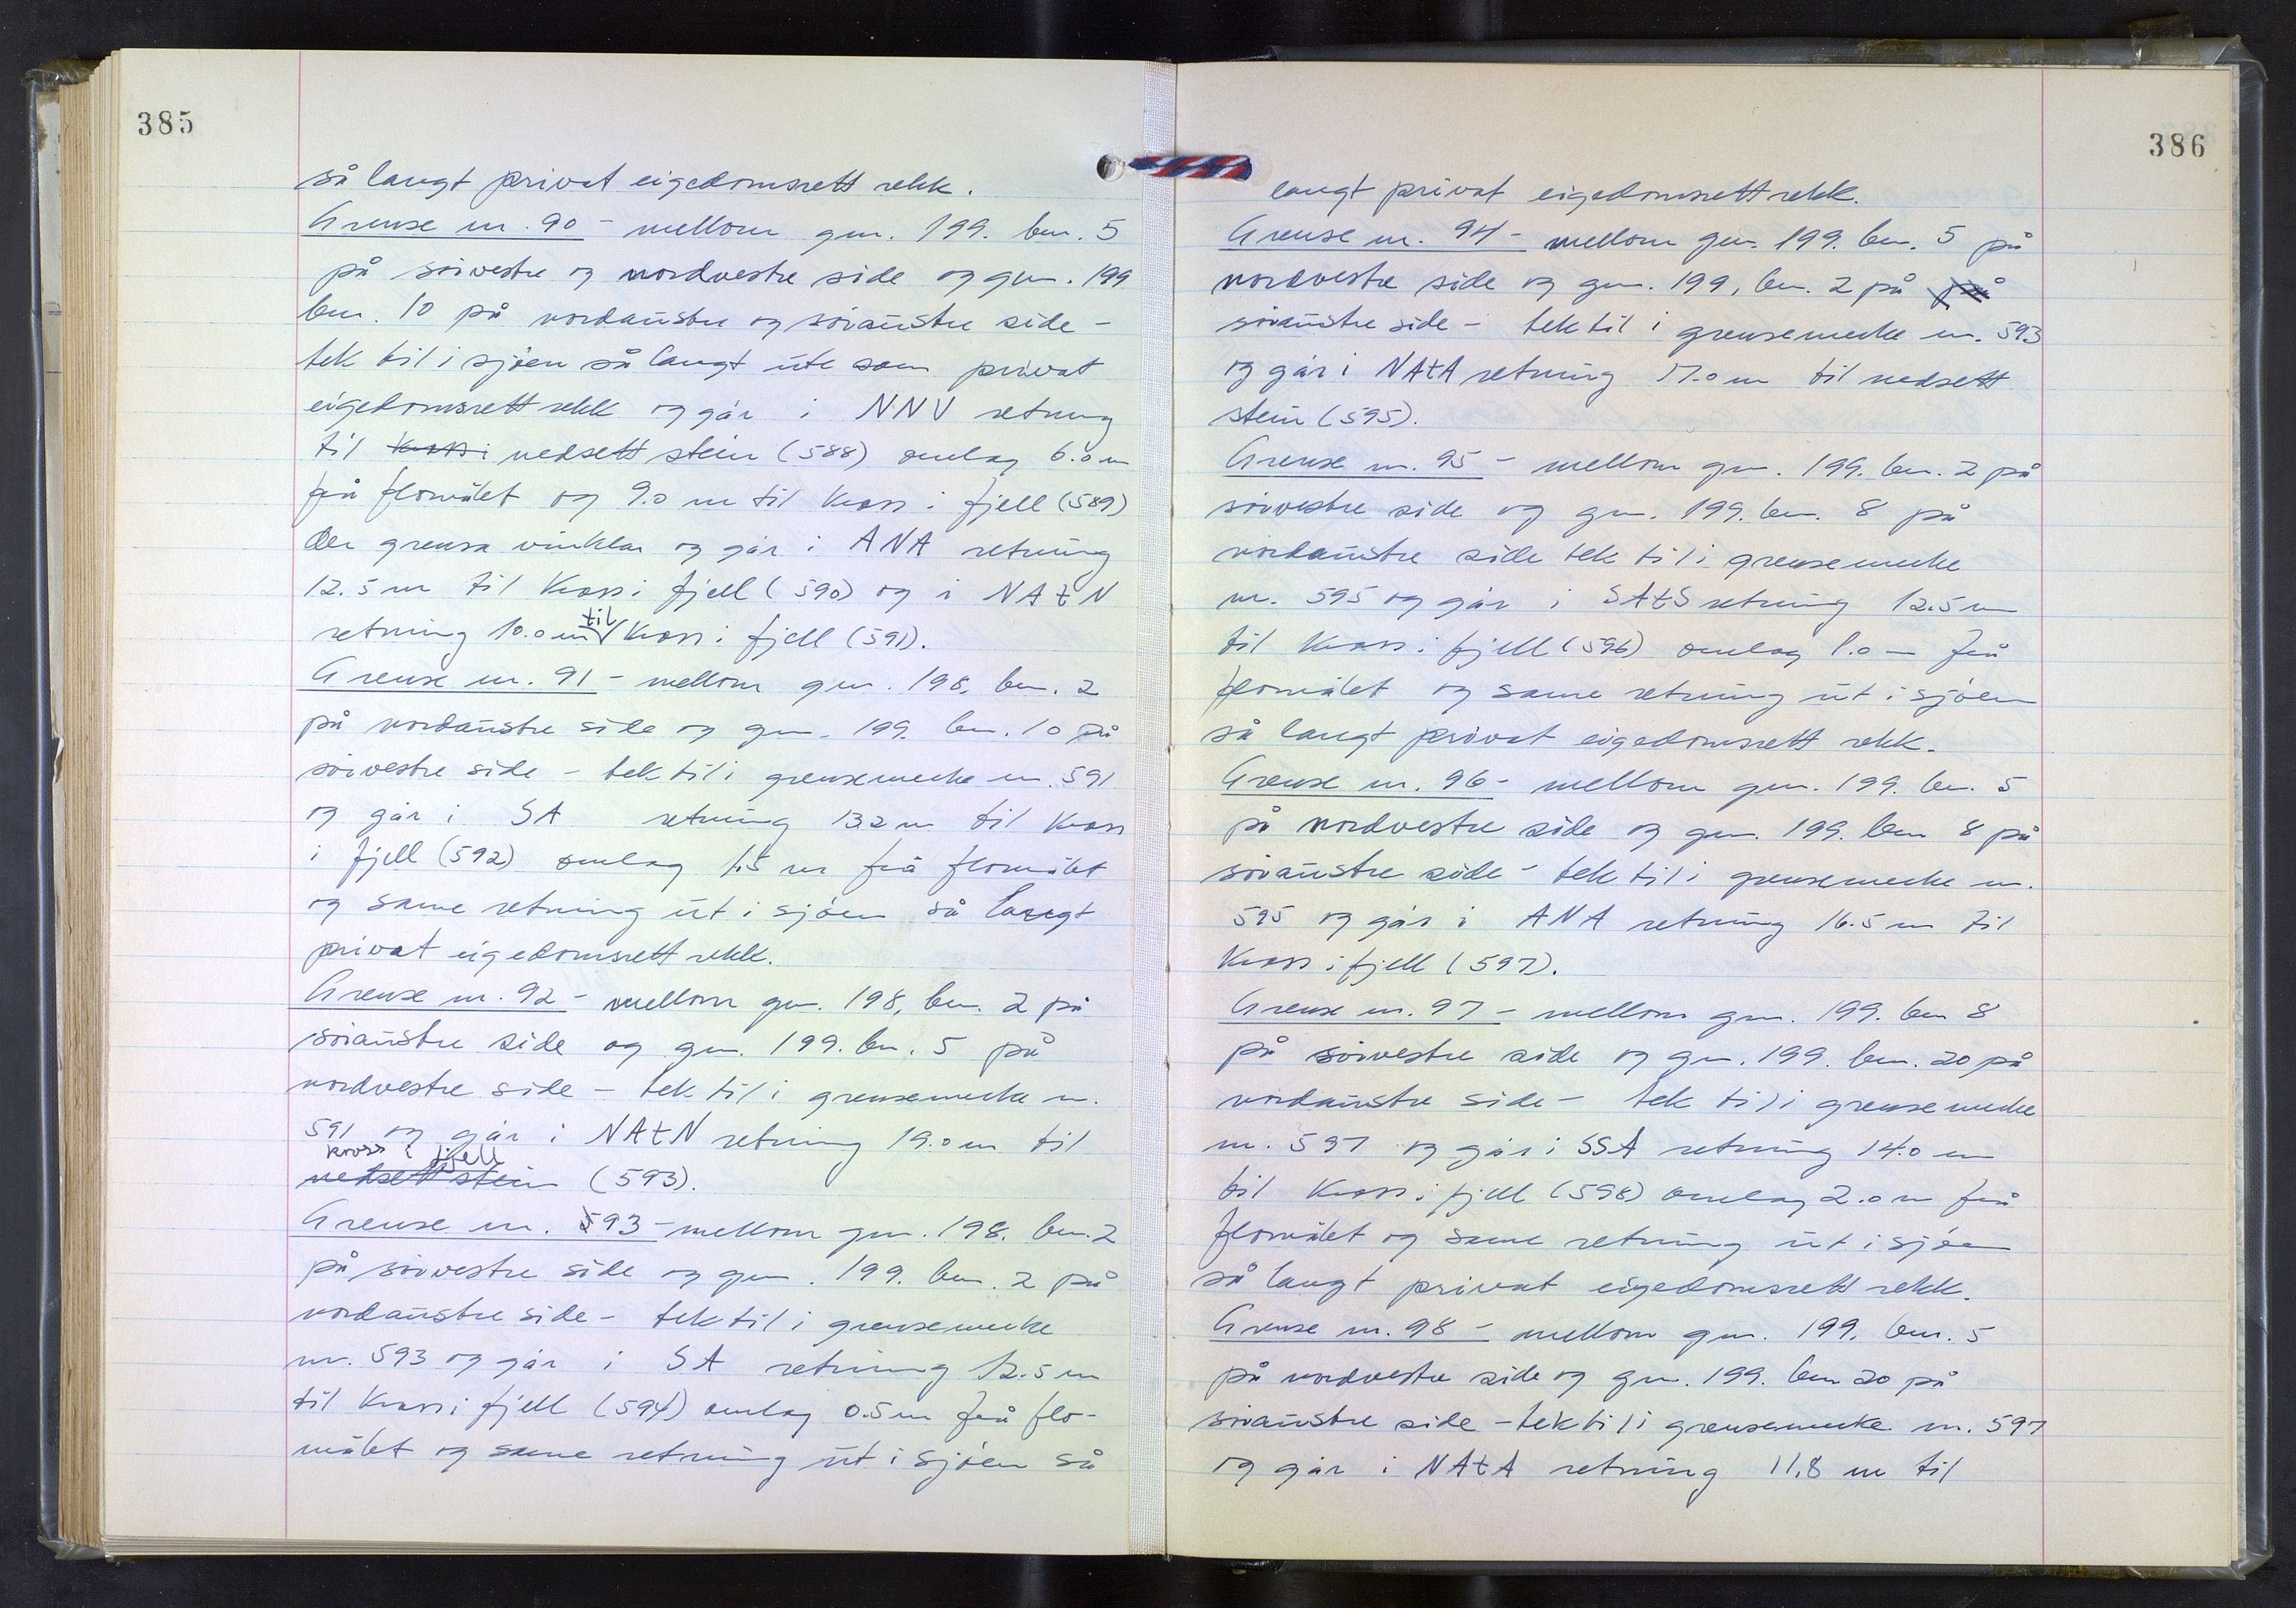 385
så langt privat eigedomsrett rekk.
Grense nr. 90 - mellom gnr. 199. bnr. 5
på sørvestre og nordvestre side og gnr. 199
bnr. 10 på nordaustre og søraustre side -
tek til i sjøen så langt ute som privat
eigedomsrett rekk og går i NNV retning
til kross i nedsett stein (588) omlag 6.0 m
frå flomålet og 9.0 m til kross i fjell (589)
der grensa vinklar og går i ANA retning
12.5 m til kross i fjell (590) og i NAtN
retning 10.0 m til kross i fjell (591).
Grense nr. 91 - mellom gnr. 198. bnr. 2
på nordaustre side og gnr. 199. bnr. 10 på
sørvestre side - tek til i grensemerke nr. 591
og går i SA retning 13.2 m til kross
i fjell (592) omlag 1.5 m frå flomålet
og same retning ut i sjøen så langt
privat eigedomsrett rekk.
Grense nr. 92 - mellom gnr. 198, bnr. 2 på
søraustre side og gnr. 199. bnr. 5 på
nordvestre side - tek til i grensemerke nr.
591 og går i NAtN retning 19.0 m til
kross i fjell
nedsett stein (593).
Grense nr. 93 - mellom gnr. 198. bnr. 2
på sørvestre side og gnr. 199. bnr. 2 på
nordaustre side - tek til i grensemerke
nr. 593 og går i SA retning 12.5 m
til kross i fjell (594) omlag 0.5 m frå flo-
målet og same retning ut i sjøen så
386
langt privat eigedomsrett rekk.
Grense nr. 94 - mellom gnr. 199. bnr. 5 på
nordvestre side og gnr. 199, bnr. 2 på på
søraustre side - tek til i grensemerke nr. 593
og går i NAtA retning 17.0 m til nedsett
stein (595).
Grense nr. 95 - mellom gnr. 199. bnr. 2 på
sørvestre side og gnr. 199. bnr. 8 på
nordaustre side tek til i grensemerke
nr. 595 og går i SAtS retning 12.5 m
til kross i fjell (596) omlag 1.0 m frå
flomålet og same retning ut i sjøen
så langt privat eigedomsrett rekk.
Grense nr. 96 - mellom gnr. 199. bnr. 5
på nordvestre side og gnr. 199. bnr 8 på
søraustre side - tek til i grensemerke nr.
595 og går i ANA retning 16.5 m til
kross i fjell (597).
Grense nr. 97 - mellom gnr. 199. bnr 8
på sørvestre side og gnr. 199. bnr. 20 på
nordaustre side - tek til i grensemerke
nr. 597 og går i SSA retning 14.0 m
til kross i fjell (598) omlag 2.0 m frå
flomålet og same retning ut i sjøen
så langt privat eigedomsrett rekk.
Grense nr. 98 - mellom gnr. 199. bnr. 5
på nordvestre side og gnr. 199. bnr 20 på
søraustre side - tek til i grensemerke nr. 597
og går i NAtA retning 11,8 m til